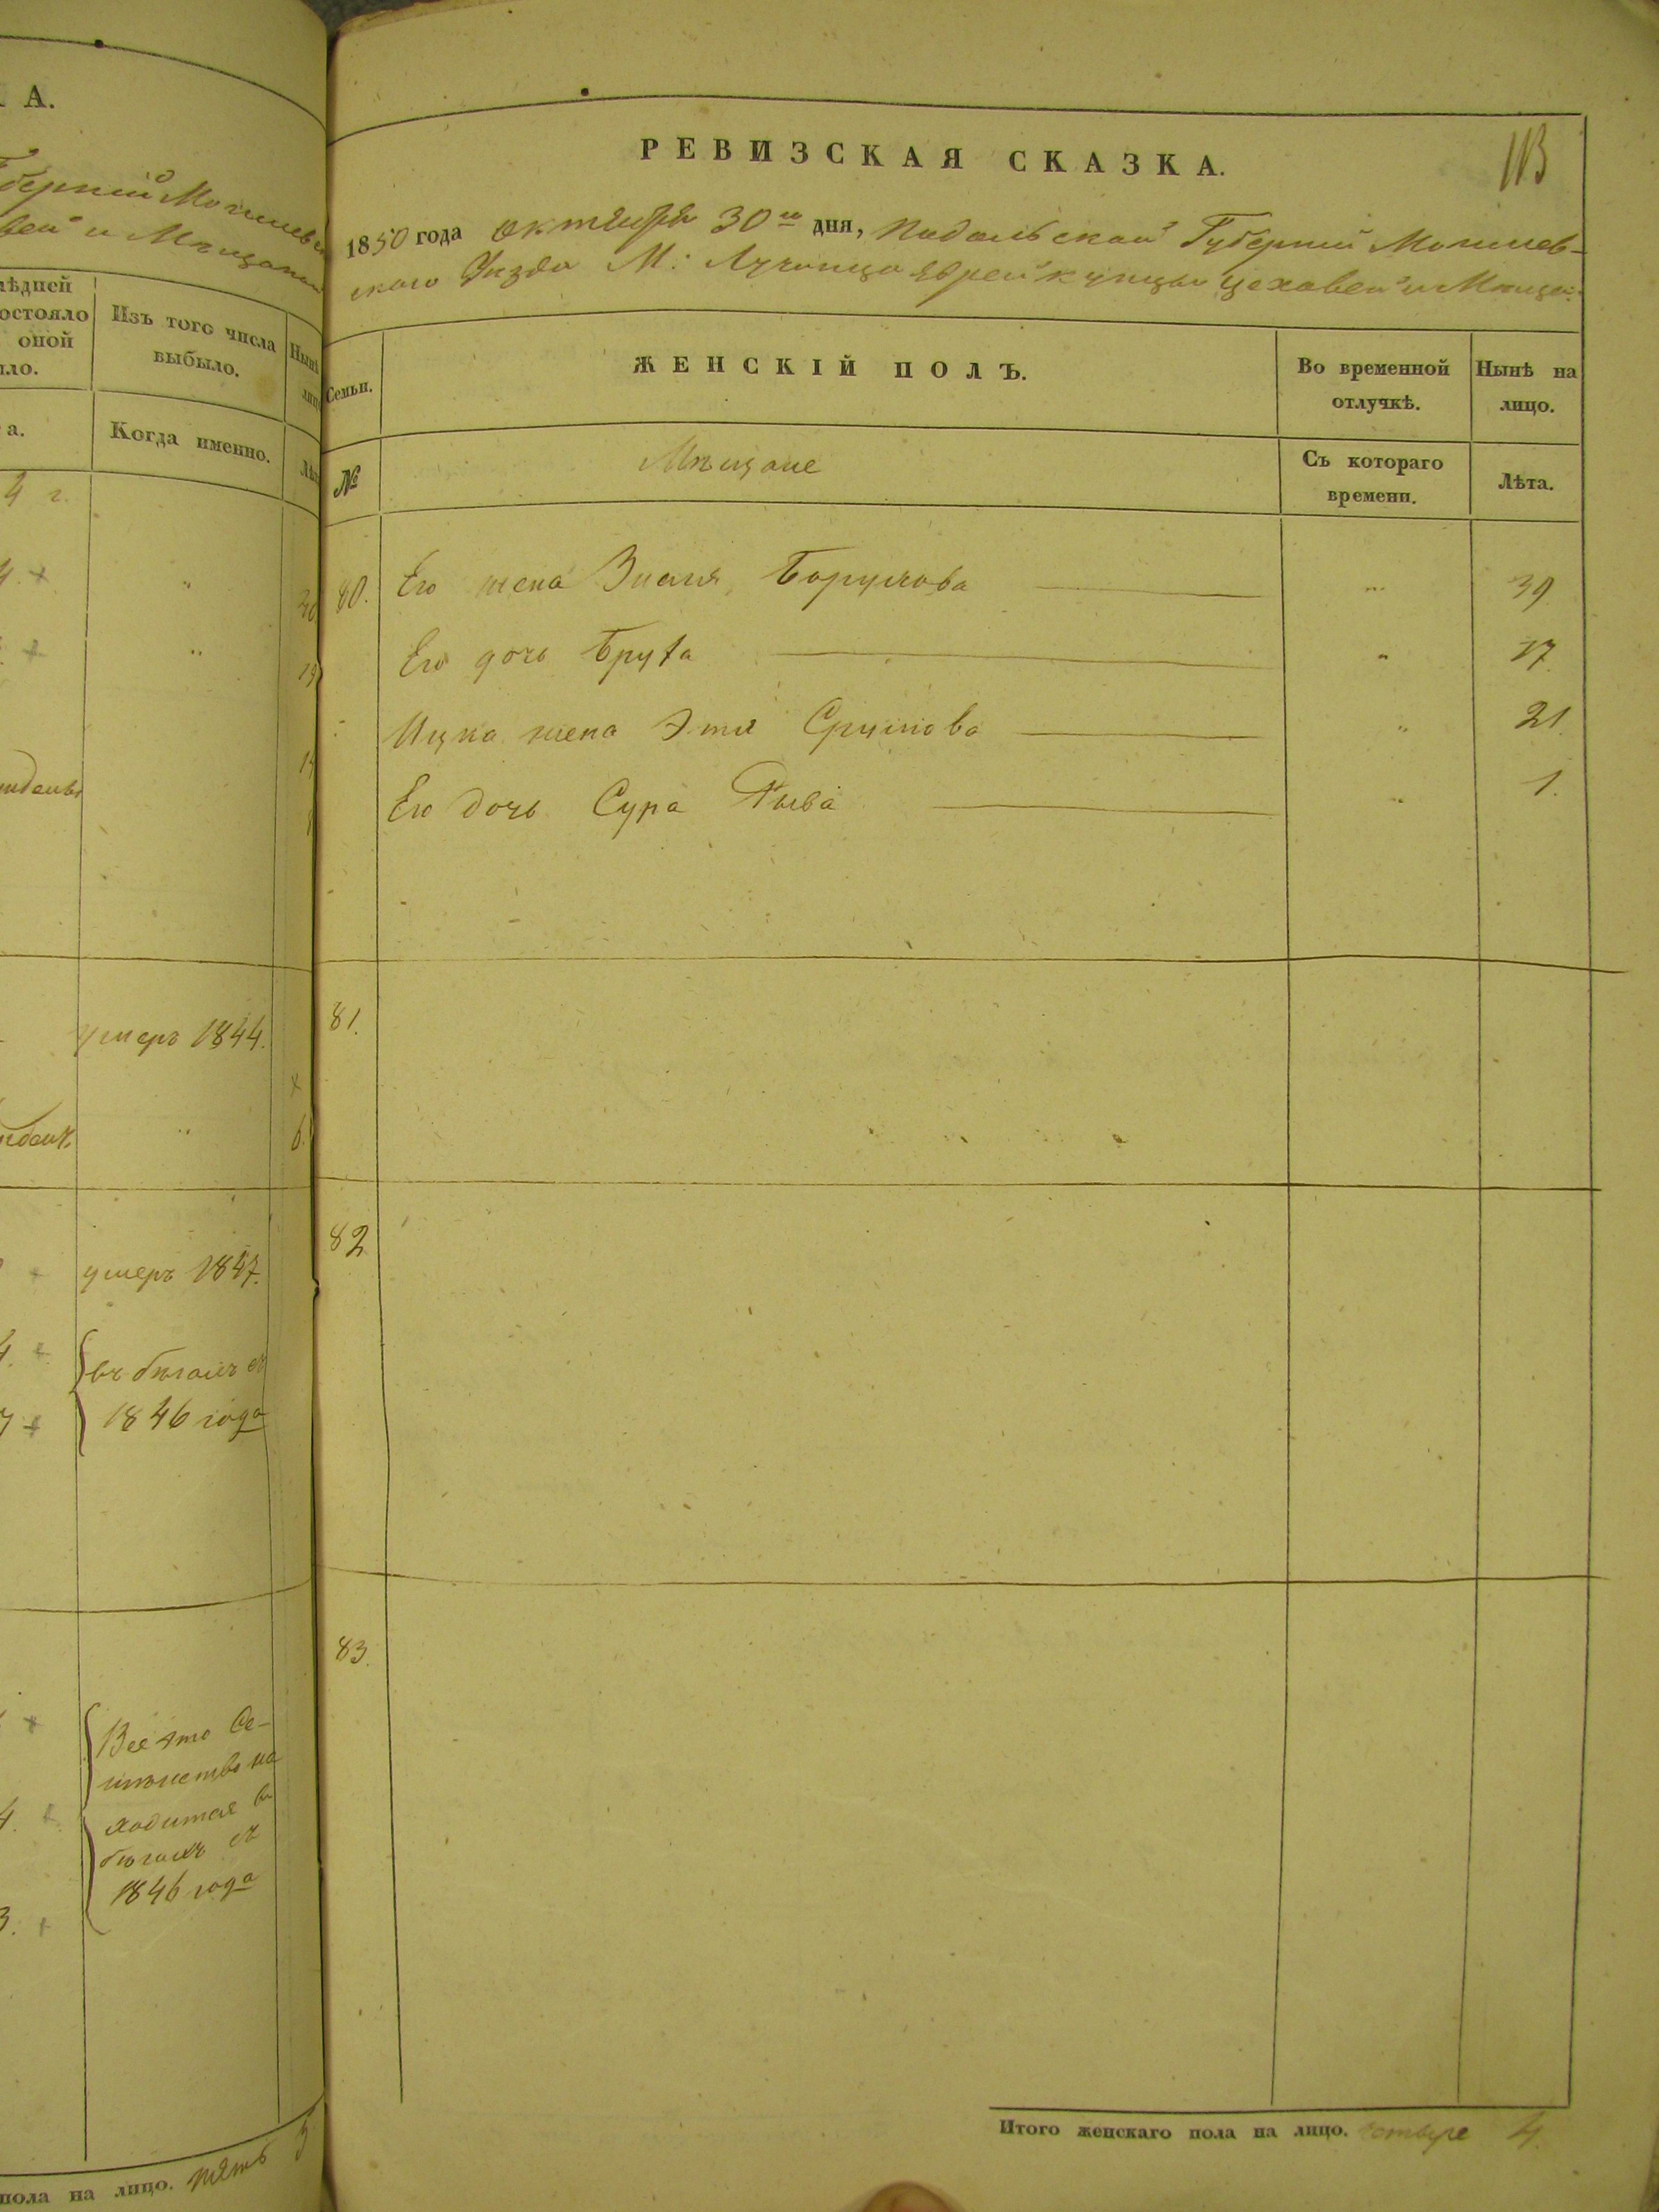 А.
Губерніи Могилев
вей и Мѣщанъ
лѣдней
остояло
оной
ыло.
Изъ того числа
выбыло.
Нынѣ
лицо
а.
Когда именно.
Лѣта
4 г.
"
"
19
умеръ 1844.
"
6.
умеръ 1847.
4.
въ бѣгахъ съ
1846 года
Все это Се-
мѣйство на
ходится въ
бѣгахъ съ
1846 года
4.
3.
пола на лицо. пять 5
РЕВИЗСКАЯ СКАЗКА.
113
1850 года октября 30го дня, Подольской Губерніи Могилев-
скаго Уѣзда М: Лучинца Еврей купцы цеховей и Мѣщан.
Семьи.
ЖЕНСКІЙ ПОЛЪ.
Во временной
отлучкѣ.
Нынѣ на
лицо.
№
Мѣщане
Съ котораго
времени.
Лѣта.
80. Его жена Зися Борухова " 39
Его дочь Бруха " 17
Ицка жена Этя Срулова " 21.
Его дочь Сура Рыва " 1.
81.
82
83.
Итого женскаго пола на лицо. четыре 4.